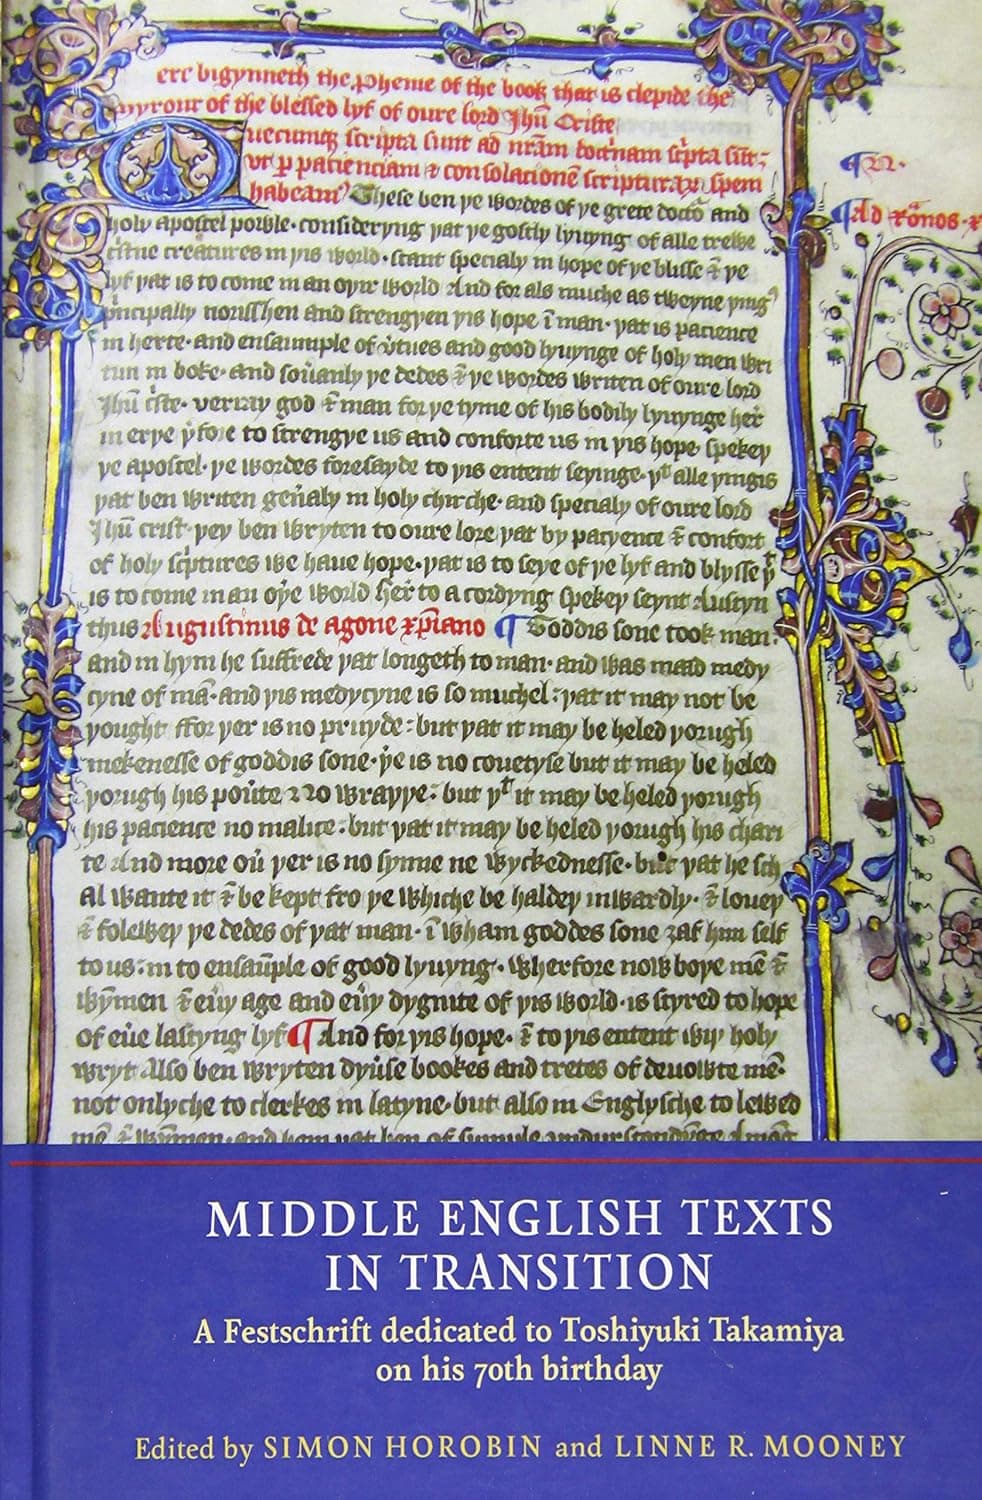 erc bigynneth the pheme of the book that is clepide the
myrour of the blessed lyf of oure lord Jhū Criste
uecumqꝫ scripta sunt ad nr̄am doctrinam sc̄pta sūt;
vt ꝑ pacienciam ⁊ consolacionē scripturaꝝ spem
habeam⁹ These ben þe wordes of þe grete doctoᷣ and
holy apostel powle · consideryng þat þe gostly lyuyng of alle trewe
creatures in þis world · stant specialy in hope of þe blisse ⁊ þe
lyf þat is to come in an oþur world And for als muche as tweyne þing⁹
pͥncipally norisshen and strengþen þis hope ī man · þat is pacience
in herte · and ensaumple of v̓tues and good lyuynge of holy men wri
tun in boke · and sou̓anly þe dedes ⁊ þe wordes writen of oure lord
Jhū cͥste · verray god ⁊ man for þe tyme of his bodily lyuynge her̓
in erþe þ̓fore to strengþe us and conforte us in þis hope · spekeþ
þe apostel · þe wordes foresayde to þis entent seyinge · þᵗ alle þingis
þat ben writen gen̓aly in holy chirche · and specialy of oure lord
Jhū crist · þey ben wryten to oure lore þat by pacyence ⁊ confort
of holy scͥptures we haue hope · þat is to seye of þe lyf and blysse þᵗ
is to come in an oþ̓e world Her̓ to acordyng spekeþ seynt Austyn
thus Augustinus de agone xp̄iano ¶ Goddis sone took man ·
and in hym he suffrede þat longeth to man · and was maad medy
cyne of mā · and þis medycyne is so muchel : þat it may not be
þought ffor þer is no pruyde : but þat it may be heled þorugh
mekenesse of goddis sone · þ̓e is no couetyse but it may be heled
þorugh his pou̓te ⁊ no wraþþe : but þᵗ it may be heled þorugh
his pacience no malice : but þat it may be heled þorugh his chari
te And more ou̓ þer is no synne ne wyckednesse · but þat he sch
al wante it ⁊ be kept fro þe whiche be haldeþ inwardly · ⁊ loueþ
⁊ foleweþ þe dedes of þat man · ī wham goddes sone ȝaf hym self
to us : in to ensaūple of good lyuyng · Wherfore now boþe mē ⁊
wȳmen ⁊ eu̓y age and eu̓y dygnite of þis world · is styred to hope
of eu̓e lastyng lyf ¶ And for þis hope · ⁊ to þis entent wiþ holy
wryt Also ben wryten dyu̓se bookes and tretes of deuowte mē ·
not onlyche to clerkes in latyne · but also in Englysche to lewed
mē ⁊ wȳmen · and hem þat ben of symple vndurstondynge Among
Ad Rōmos · x
MIDDLE ENGLISH TEXTS
IN TRANSITION
A Festschrift dedicated to Toshiyuki Takamiya
on his 70th birthday
Edited by SIMON HOROBIN and LINNE R. MOONEY